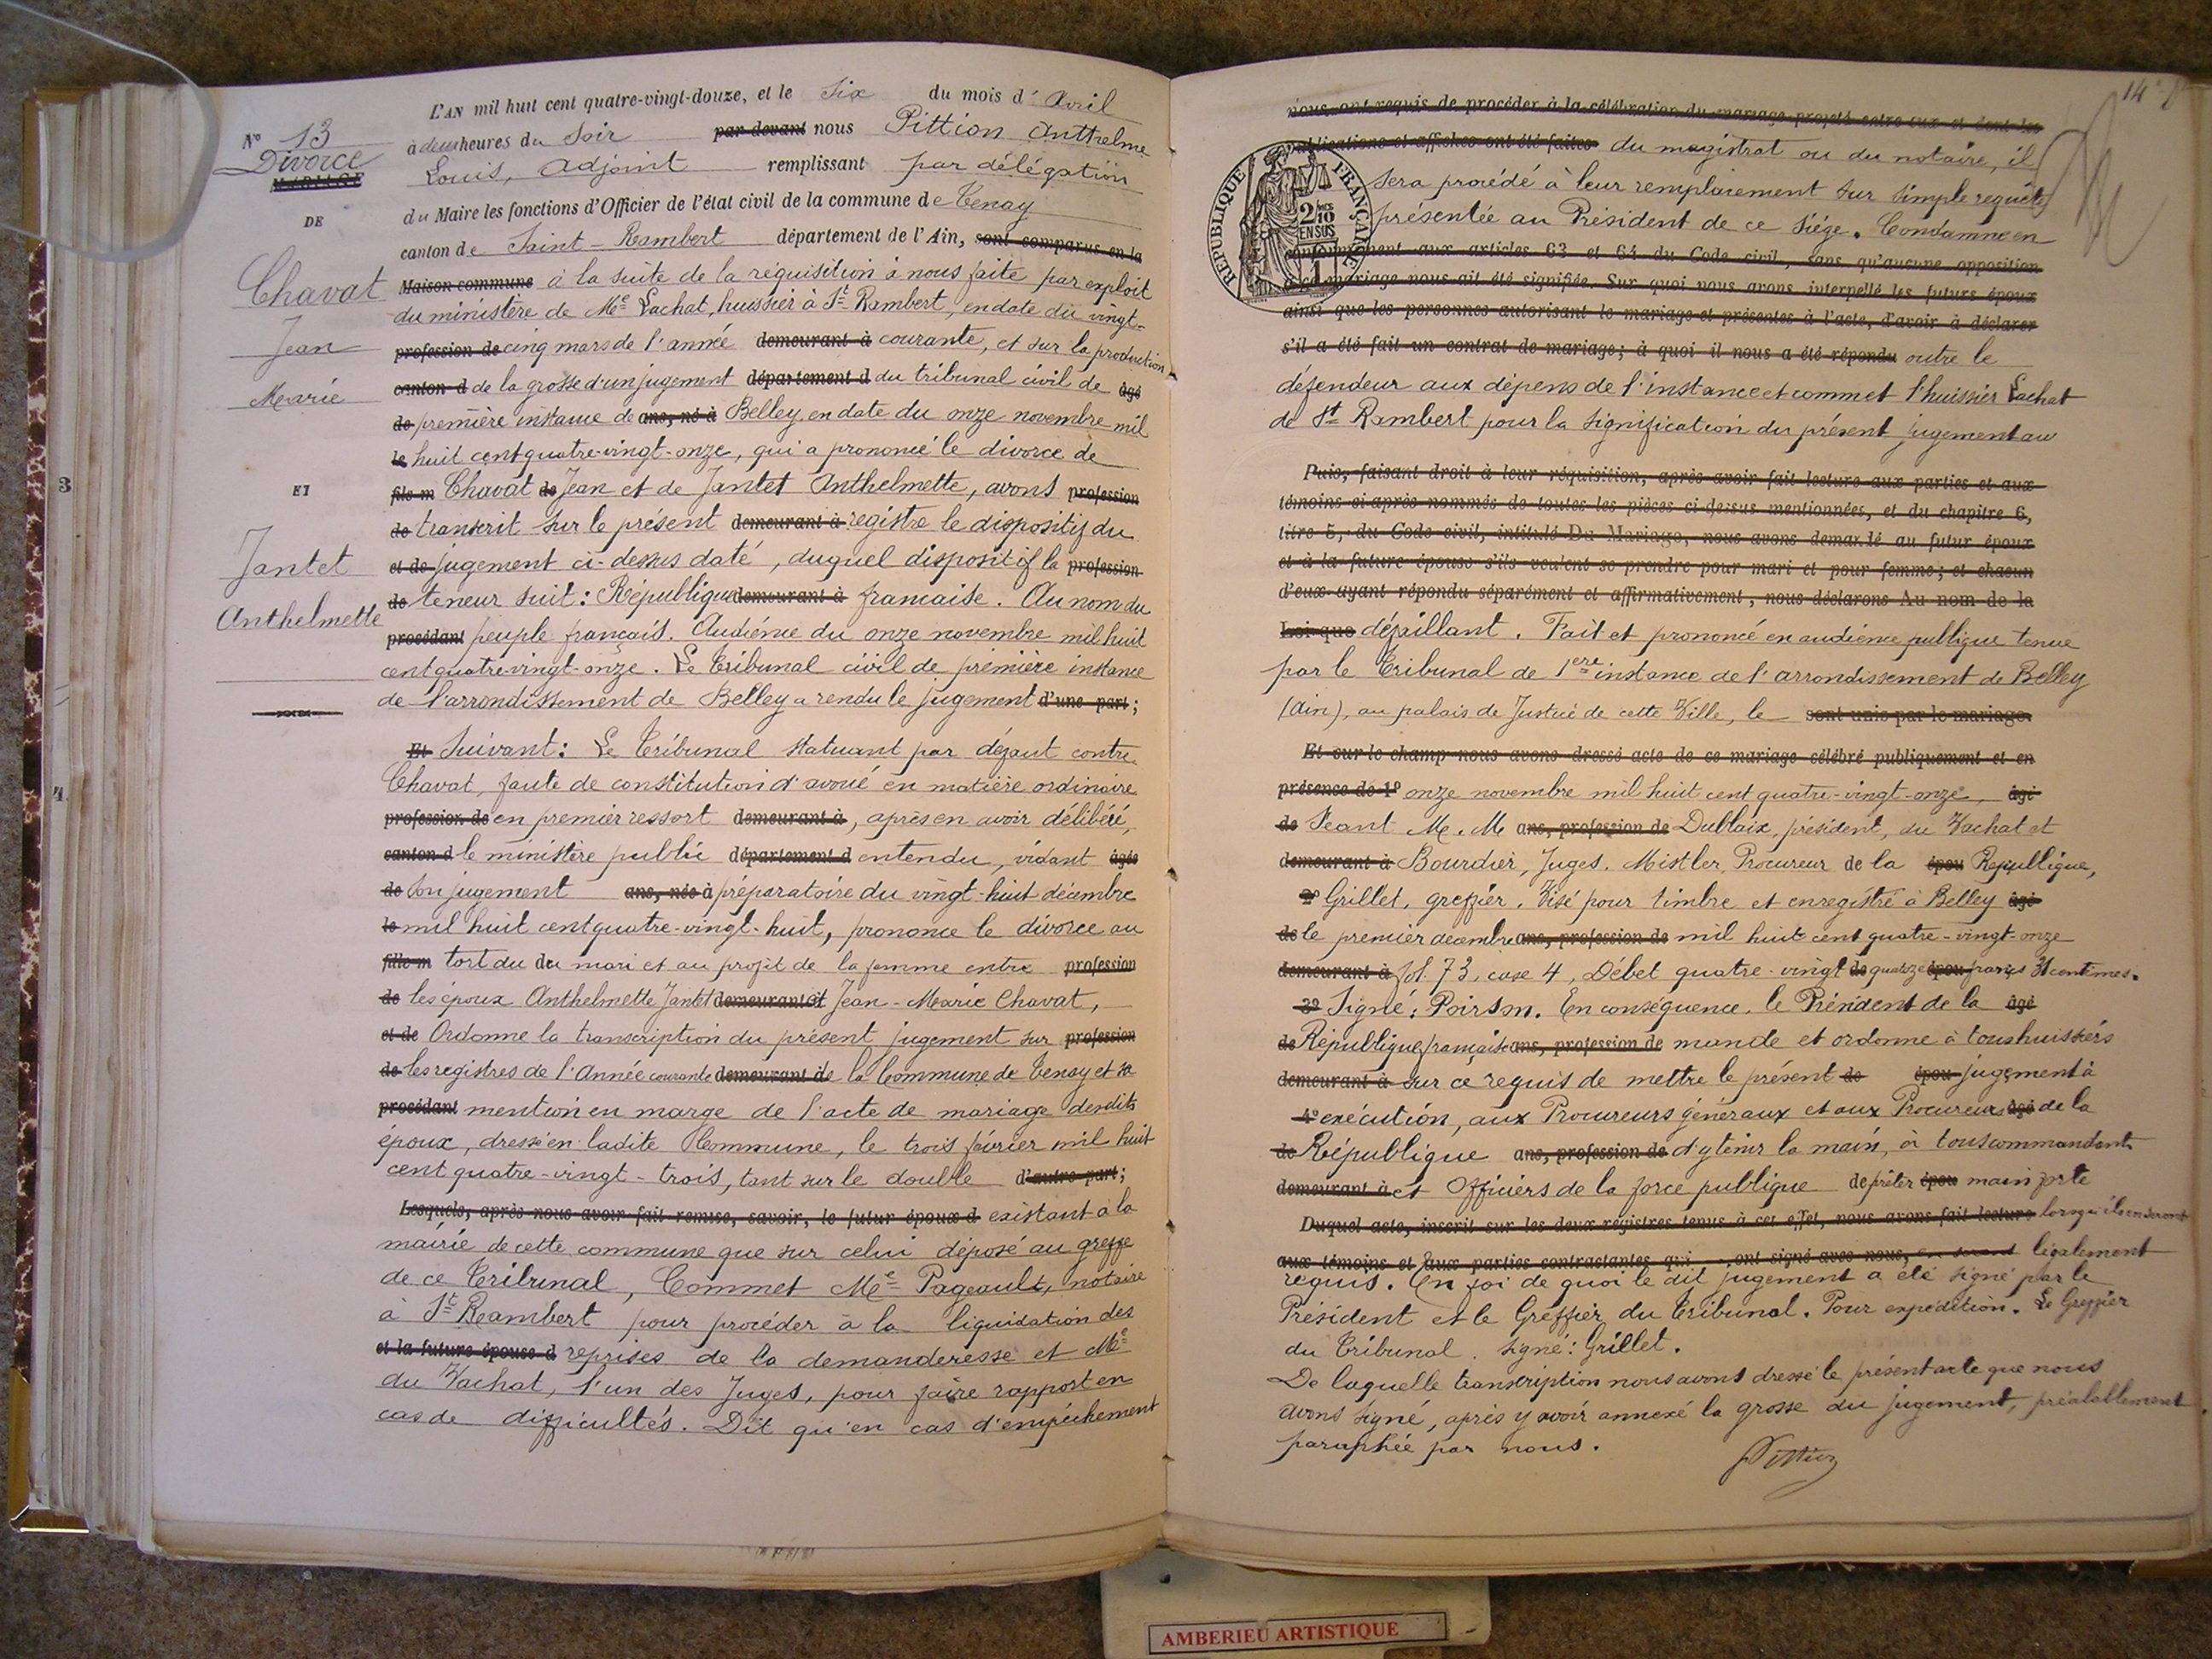 L'AN mil huit cent quatre-vingt-douze, et le Six du mois d'Avril
à deux heures du Soir par devant nous Pittion Anthelme
Louis, Adjoint remplissant par délégation
du Maire les fonctions d'Officier de l'état civil de la commune de Tenay
canton de Saint-Rambert département de l'Ain, sont comparus en la
Maison commune à la suite de la réquisition à nous faite par exploit
du ministère de Me Lachat, huissier à St Rambert, en date du vingt-
profession de cinq mars de l'année demeurant à courante, et sur la production
canton d de la grosse d'un jugement département d du tribunal civil de âgé
de première instance de ans, né à Belley, en date du onze novembre mil
le huit cent quatre-vingt-onze, qui a prononcé le divorce de
fils m Chavat de Jean et de Jantet Anthelmette, avons profession
de transcrit sur le présent demeurant à registre le dispositif du
et de jugement ci-dessus daté, duquel dispositif la profession
de teneur suit : République demeurant à française. Au nom du
procédant peuple français. Audience du onze novembre mil huit
cent quatre-vingt-onze. Le Tribunal civil de première instance
de l'arrondissement de Belley a rendu le jugement d'une part;
Et Suivant : Le Tribunal statuant par défaut contre
Chavat, faute de constitution d'avoué en matière ordinaire
profession de en premier ressort demeurant à, après en avoir délibéré,
canton d le ministère public département d entendu, vidant âgée
de son jugement ans, née à préparatoire du vingt-huit décembre
le mil huit cent quatre-vingt-huit, prononce le divorce au
fille m tort du du mari et au profit de la femme entre profession
de les époux Anthelmette Jantet demeurant et Jean-Marie Chavat,
et de Ordonne la transcription du présent jugement sur profession
de les registres de l'Année courante demeurant de la Commune de Tenay et sa
procédant mention en marge de l'acte de mariage desdits
époux, dressé en ladite Commune, le trois février mil huit
cent quatre-vingt-trois, tant sur le double d'autre part;
Lesquels, après nous avoir fait remise, savoir, le futur époux d existant à la
mairie de cette commune que sur celui déposé au greffe
de ce Tribunal, Commet Me Pageault, notaire
à St Rambert pour procéder à la liquidation des
et la future épouse d reprises de la demanderesse et Me
du Vachat, l'un des Juges, pour faire rapport en
cas de difficultés. Dit qu'en cas d'empêchement
No 13
Divorce
MARIAGE
DE
Chavat
Jean
Marie
ET
Jantet
Anthelmette
3
4
14e
nous ont requis de procéder à la célébration du mariage projeté entre eux et dont les
publications et affiches ont été faites du magistrat ou du notaire, il
sera procédé à leur remplacement sur simple requête
présentée au Président de ce Siége. Condamne en
conformément aux articles 63 et 64 du Code civil, sans qu'aucune opposition
à ce mariage nous ait été signifiée. Sur quoi nous avons interpellé les futurs époux
ainsi que les personnes autorisant le mariage et présentes à l'acte, d'avoir à déclarer
s'il a été fait un contrat de mariage; à quoi il nous a été répondu outre le
défendeur aux dépens de l'instance et commet l'huissier Lachat
de St Rambert pour la signification du présent jugement au
Puis, faisant droit à leur réquisition, après avoir fait lecture aux parties et aux
témoins ci-après nommés de toutes les pièces ci-dessus mentionnées, et du chapitre 6,
titre 5, du Code civil, intitulé Du Mariage, nous avons demandé au futur époux
et à la future épouse s'ils veulent se prendre pour mari et pour femme; et chacun
d'eux ayant répondu séparément et affirmativement, nous déclarons Au nom de la
Loi que défaillant. Fait et prononcé en audience publique tenue
par le Tribunal de 1ere instance de l'arrondissement de Belley
(Ain), au palais de Justice de cette Ville, le sont unis par le mariage.
Et sur le champ nous avons dressé acte de ce mariage célébré publiquement et en
présence de 1º onze novembre mil huit cent quatre-vingt-onze, âgé
de Séant M. M ans, profession de Dublaix, président, du Vachat et
demeurant à Bourdier, Juges. Mistler, Procureur de la épou République,
2º Grillet, greffier. Visé pour timbre et enregistré à Belley âgé
de le premier décembre ans, profession de mil huit cent quatre-vingt-onze
demeurant à fol. 73, case 4, Débet quatre-vingt de quatorze épou francs 31 centimes.
3º Signé : Poirson. En conséquence, le Président de la âgé
de République française ans, profession de mande et ordonne à tous huissiers
demeurant à sur ce requis de mettre le présent de épou jugement à
4º exécution, aux Procureurs généraux et aux Procureurs âgé de la
de République ans, profession de d'y tenir la main, à tous commandants
demeurant à et Officiers de la force publique de prêter épou main forte
Duquel acte, inscrit sur les deux registres tenus à cet effet, nous avons fait lecture lorsqu'ils en seront
aux témoins et aux parties contractantes qui ont signé avec nous, en seront légalement
requis. En foi de quoi le dit jugement a été signé par le
Président et le Greffier du Tribunal. Pour expédition. Le Greffier
du Tribunal. signé : Grillet.
De laquelle transcription nous avons dressé le présent acte que nous
avons signé, après y avoir annexé la grosse du jugement, préalablement
paraphée par nous.
Pittion
RÉPUBLIQUE FRANÇAISE
2/10 EN SUS
AMBERIEU ARTISTIQUE